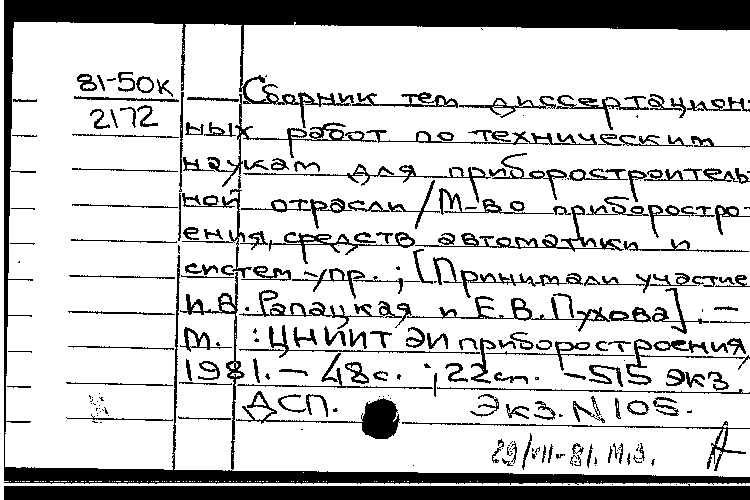 81-50к
2172
Сборник тем диссертацион-
ных работ по техническим
наукам для приборостроитель-
ной отрасли / М-во приборостро-
ения, средств автоматики и
систем упр.; [Принимали участие
И.В. Рапацкая и Е.В. Пухова]. —
М. : ЦНИИТЭИприборостроения,
1981. — 48с. ; 22см. — 515 экз.
ДСП. Экз. N 105.
29/VII-81. М.З.